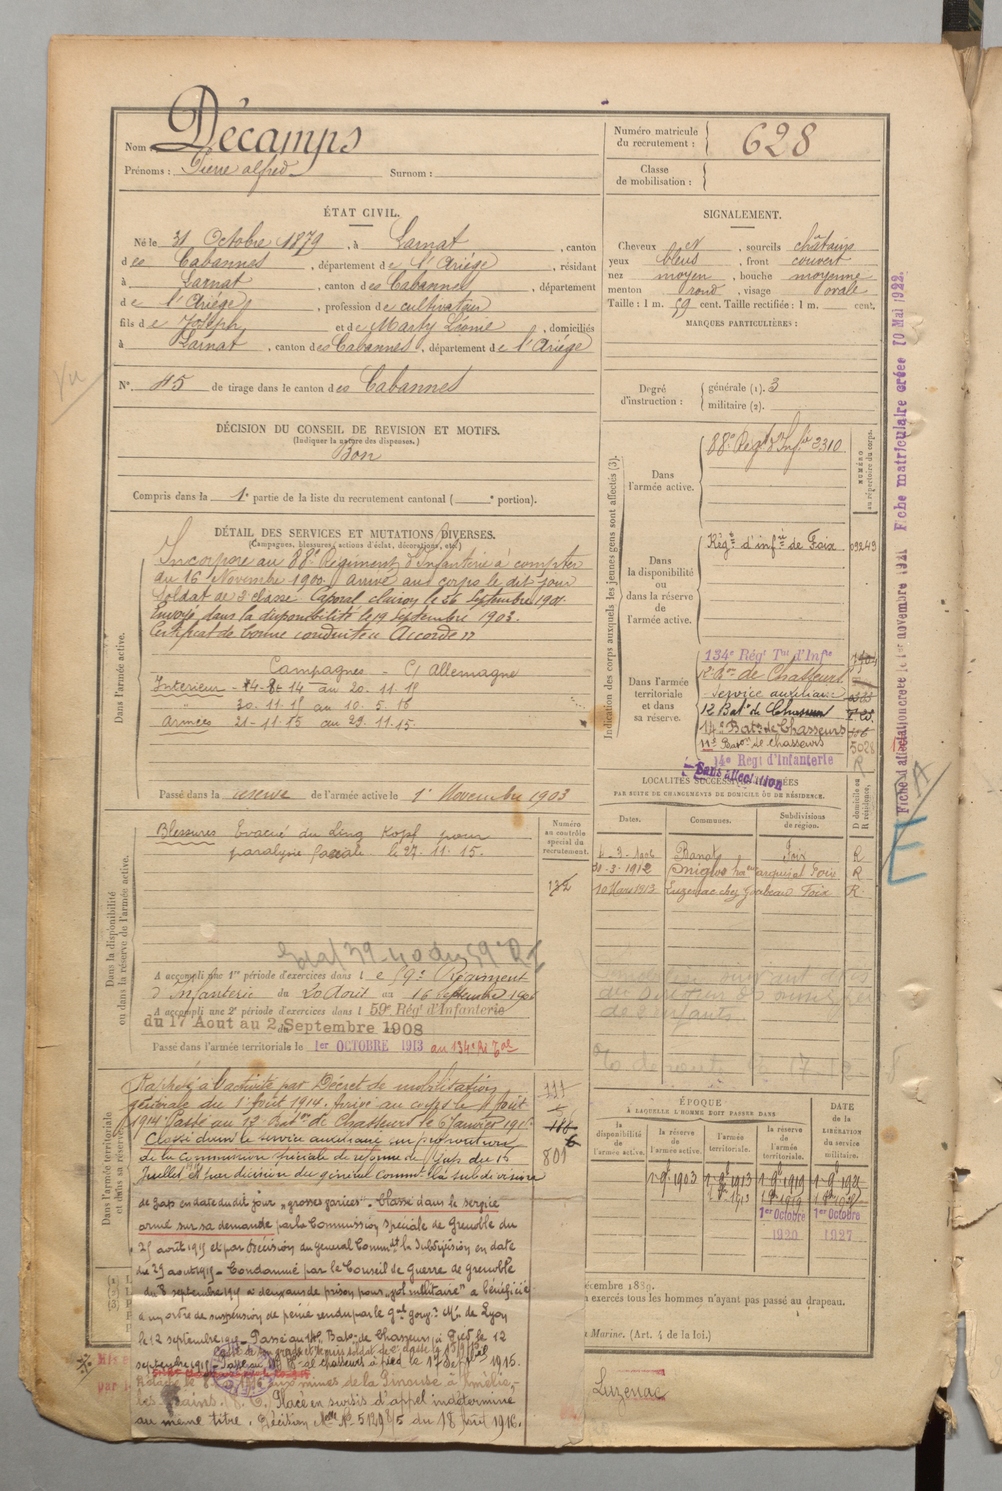 Nom Décamps
Prénoms : Pierre alfred Surnom :
Numéro matricule du recrutement : 628
Classe de mobilisation :
ÉTAT CIVIL.
Né le 31 Octobre 1879, à Larnat, canton
des Cabannes, département de l'Ariége, résidant
à Larnat, canton des Cabannes, département
de l'Ariége, profession de cultivateur
fils de Joseph et de Marty Léonie, domiciliés
à Larnat, canton des Cabannes, département de l'Ariége
N° 45 de tirage dans le canton des Cabannes
SIGNALEMENT.
Cheveux N, sourcils châtains
yeux bleus, front couvert
nez moyen, bouche moyenne
menton rond, visage ovale
Taille : 1 m. 59 cent. Taille rectifiée : 1 m. cent.
MARQUES PARTICULIÈRES :
Degré d'instruction : générale (1). 3
militaire (2).
DÉCISION DU CONSEIL DE REVISION ET MOTIFS.
(Indiquer la nature des dispenses.)
Bon
Compris dans la 1e partie de la liste du recrutement cantonal ( e portion).
DÉTAIL DES SERVICES ET MUTATIONS DIVERSES.
(Campagnes, blessures, actions d'éclat, décorations, etc.)
Dans l'armée active.
Incorporé au 88e Régiment d'Infanterie à compter
du 16 Novembre 1900. Arrivé au corps le dit jour
Soldat de 2e classe. Caporal clairon le 26 Septembre 1901.
Envoyé dans la disponibilité le 19 septembre 1903.
Certificat de bonne conduite « Accordé »
Campagnes - C/ Allemagne
Intérieur - 4-8-14 au 20.11.15
" 30.11.15 au 10.5.16
Armées 21-11-15 au 29.11.15.
Passé dans la réserve de l'armée active le 1er Novembre 1903
Indication des corps auxquels les jeunes gens sont affectés (3).
NUMÉRO au répertoire du corps.
Dans l'armée active.
88e Régt d'Infie 2310
Dans la disponibilité ou dans la réserve de l'armée active.
Régt d'infie de Foix 09249
Dans l'armée territoriale et dans sa réserve.
134e Régt Tal d'Infie
de Chasseurs
Service auxiliaire
12 Baton de Chasseurs
14e Baton de Chasseurs
11e Baton de Chasseurs 5028
14e Régt d'Infanterie R
Sans affectation
LOCALITÉS SUCCESSIVES HABITÉES
PAR SUITE DE CHANGEMENTS DE DOMICILE OU DE RÉSIDENCE.
Dates. Communes. Subdivisions de région. D domicile ou R résidence.
Banat Foix R
31-3-1912 Foix R
10 Mars 1913 Luzenac chez Foix R
Dans la disponibilité ou dans la réserve de l'armée active.
Numéro au contrôle spécial du recrutement.
Blessures Evacué du Ling Kopf pour
paralysie faciale le 27.11.15.
132
A accompli une 1re période d'exercices dans le 59e Régiment
d'Infanterie du 20 Août au 16 septembre 1906
A accompli une 2e période d'exercices dans le 59e Régt d'Infanterie
du 17 Aout au 2 Septembre 1908
Passé dans l'armée territoriale le 1er OCTOBRE 1913 au 134e Rt Tal
Dans l'armée territoriale et dans sa réserve
Rappelé à l'activité par Décret de mobilisation
générale du 1er Août 1914. Arrivé au corps le 4 Août
1914. Passé au 12e Baton de Chasseurs le 6 Janvier 1915
Classé dans le service auxiliaire sur proposition
de la commission spéciale de réforme de Gap du 15
Juillet et sur décision du général commt la subdivision
de Gap en date du dit jour "grosses varices". Classé dans le service
armé sur sa demande par la Commission spéciale de Grenoble du
25 août 1915 et par Décision du Général Commdt la Subdivision en date
du 25 aout 1915 - Condamné par le Conseil de Guerre de Grenoble
du 8 septembre 1915 à deux ans de prison pour "vol militaire" a bénéficié
d'un ordre de suspension de peine rendu par le Gal gouvr Mre de Lyon
le 12 septembre 1915 - Passé au 14e Baton de Chasseurs à Pied le 12
septembre 1915 - Passé au Bon de chasseurs à pied le 1er Sept 1916.
aux mines de la Pinouse à Amélie-
les-Bains. P.O. Placé en sursis d'appel indéterminé
au même titre. Décision Mlle No 5129 2/5 du 18 Août 1916.
801
ÉPOQUE
À LAQUELLE L'HOMME DOIT PASSER DANS
DATE de la LIBÉRATION du service militaire.
la disponibilité de l'armée active. la réserve de l'armée active. l'armée territoriale. la réserve de l'armée territoriale.
1er Octobre 1920 1er Octobre 1927
décembre 1889.
exercés tous les hommes n'ayant pas passé au drapeau.
Marine. (Art. 4 de la loi.)
Luzenac
Fiche d'affectation créée le 1er novembre 1921 Fiche matriculaire créée 10 Mai 1922.